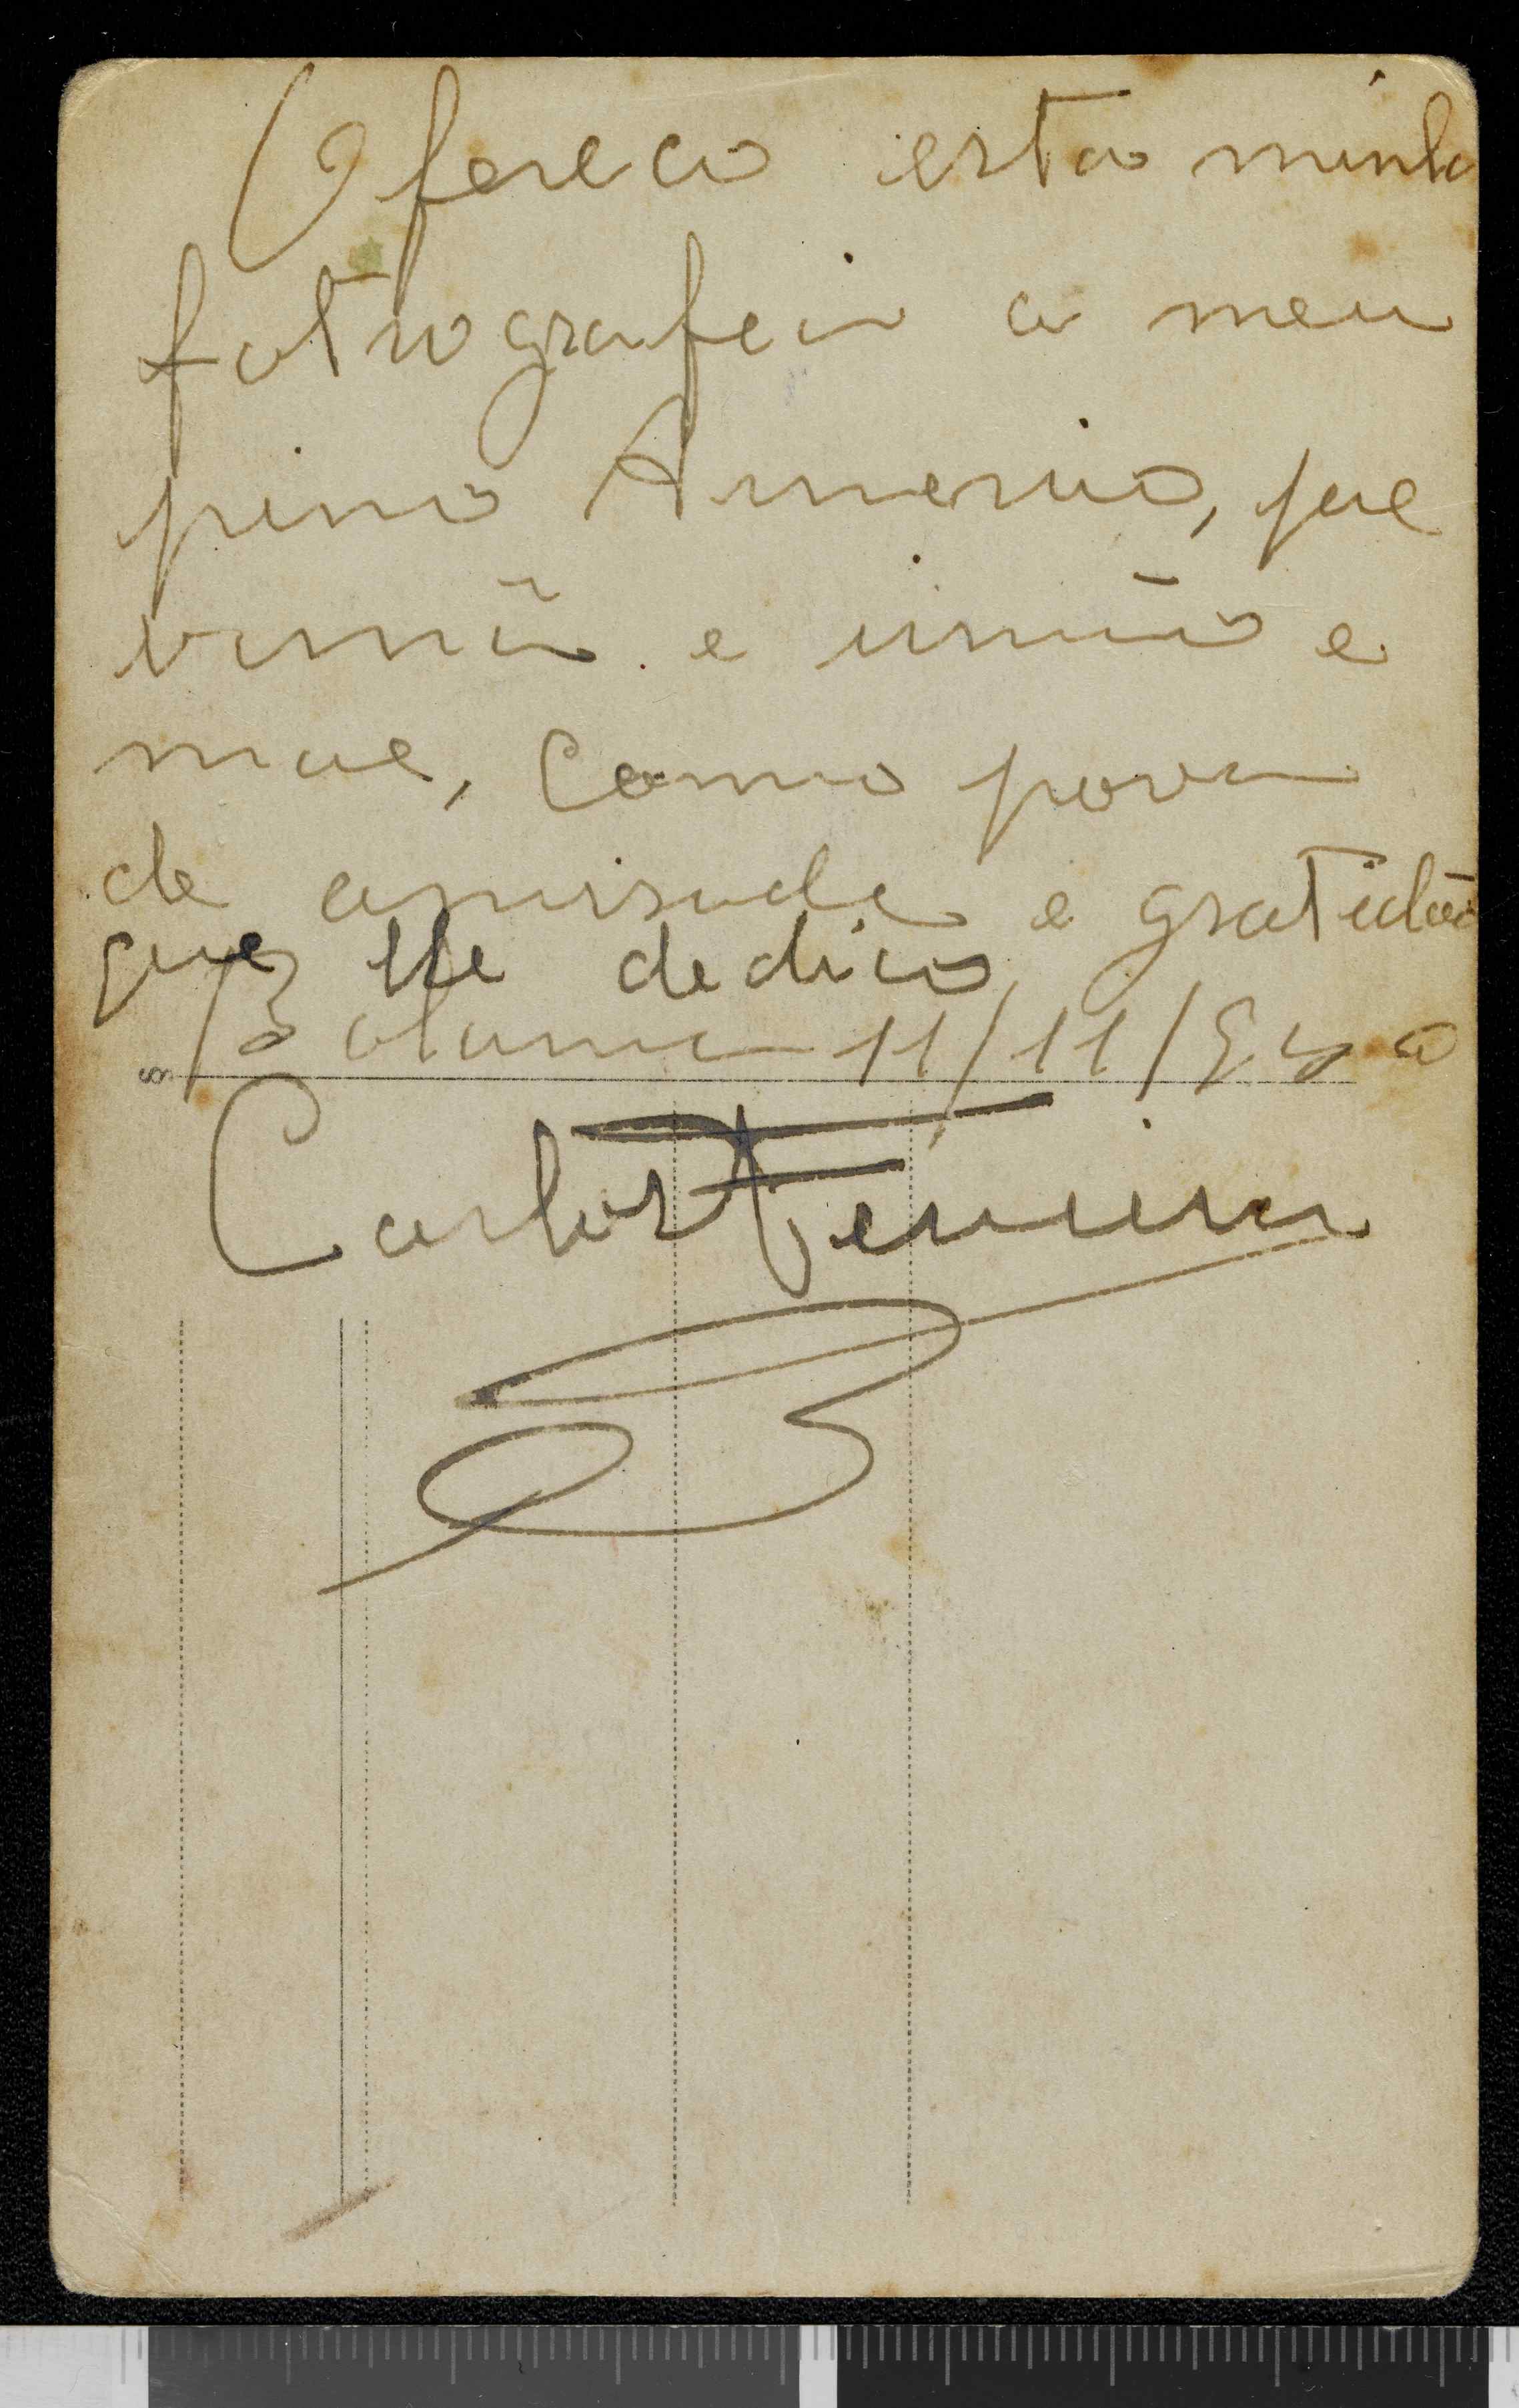 Ofereco esta minha
fotografia a meu
primo Armenio, 
e irmão e
mae, Como prova
de amisade e gratidão
que lhe dedico
11/11/
Carlos Ferreira